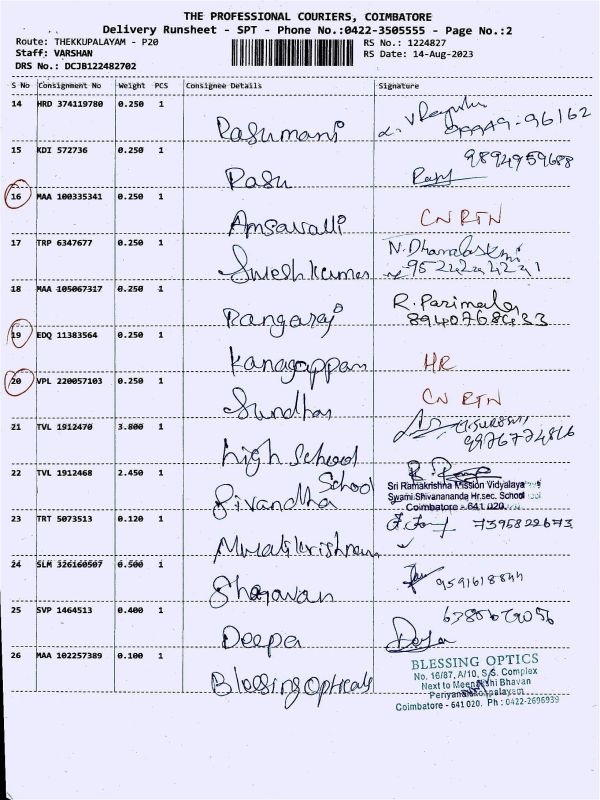 THE PROFESSIONAL COURIERS, COIMBATORE
Delivery Runsheet - SPT - Phone No.:0422-3505555 - Page No.:2
Route: THEKKUPALAYAM - P20 RS No.: 1224827
Staff: VARSHAN RS Date: 14-Aug-2023
DRS No.: DCJB122482702
S No Consignment No Weight PCS Consignee Details Signature
14 HRD 374119780 0.250 1
Rasumani
15 KDI 572736 0.250 1 9894959688
Rasu
16 MAA 100335341 0.250 1
Amsavalli CN RTN
17 TRP 6347677 0.250 1
Sureshkumar
18 MAA 105067317 0.250 1
Rangaraj R. Parimala
19 EDQ 11383564 0.250 1
Kanagappan HR
20 VPL 220057103 0.250 1
Sundhar CN RTN
21 TVL 1912470 3.800 1
high School
22 TVL 1912468 2.450 1
Sivandha School Sri Ramakrishna Mission Vidyalaya
Swami Shivanananda Hr.sec. School
Coimbatore - 641 020.
23 TRT 5073513 0.120 1 7395822673
Muralikrishnan
24 SLM 326160507 0.500 1
Shagavan 9591618844
25 SVP 1464513 0.400 1
Deepa
26 MAA 102257389 0.100 1 BLESSING OPTICS
Blessing Opticals No. 16/87, A/10, S.S. Complex
Next to Meenakshi Bhavan
Coimbatore - 641 020. Ph : 0422-2696939